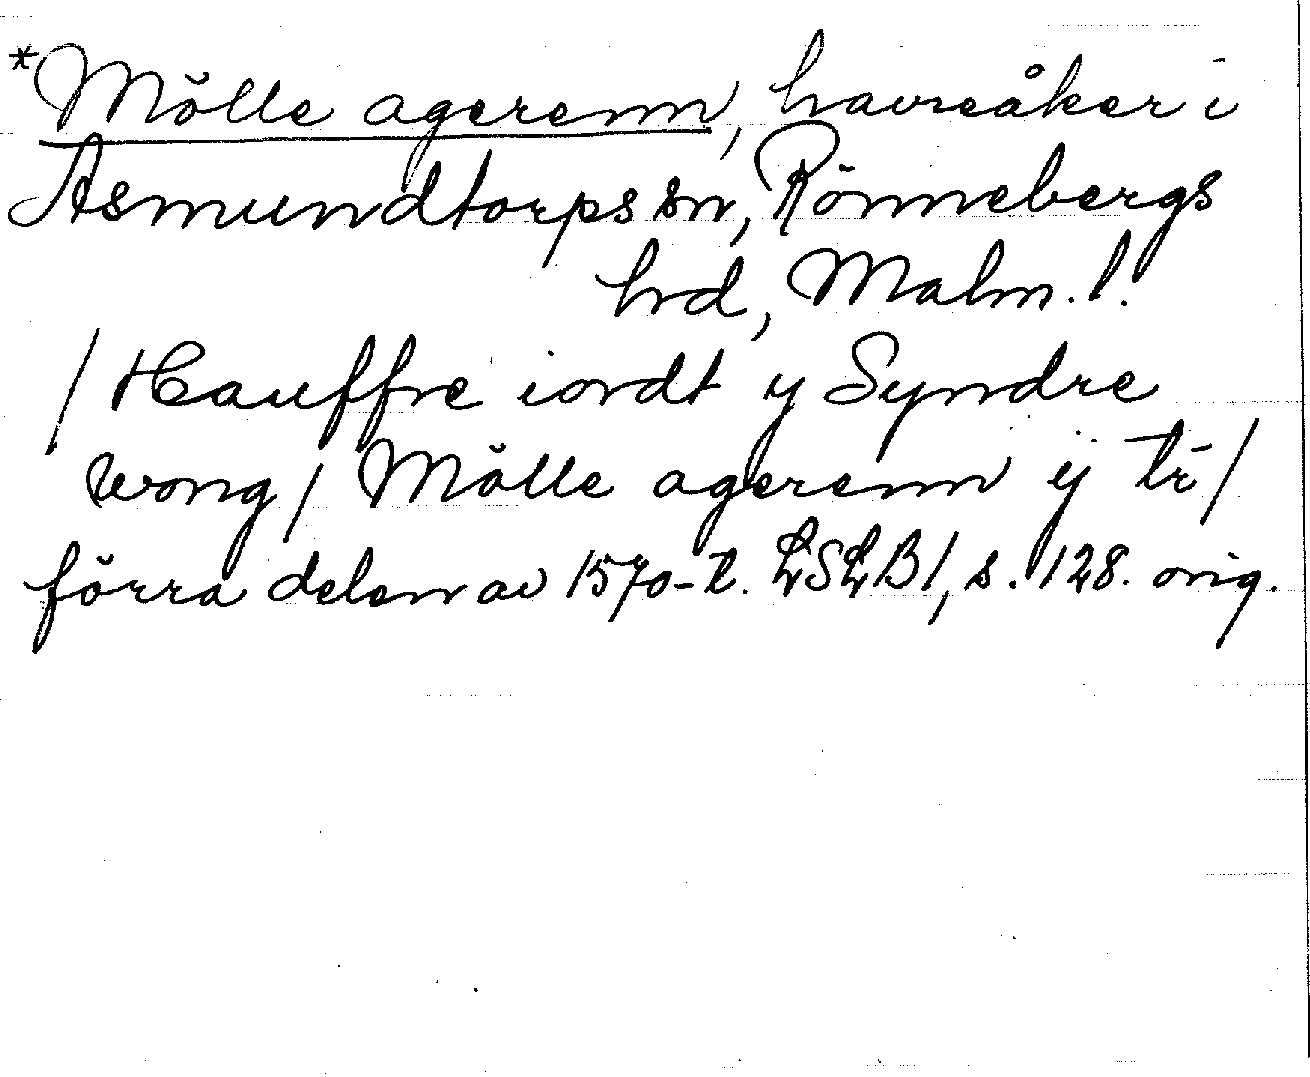 *Mölle agerenn, havreåker i
Asmundtorps sn, Rönnebergs
hrd, Malm. l.
/Hauffre iordt y Syndre
wong/ Mölle agerenn ij tr/
förra delen av 1570-t. LSLB1, s. 128. orig.